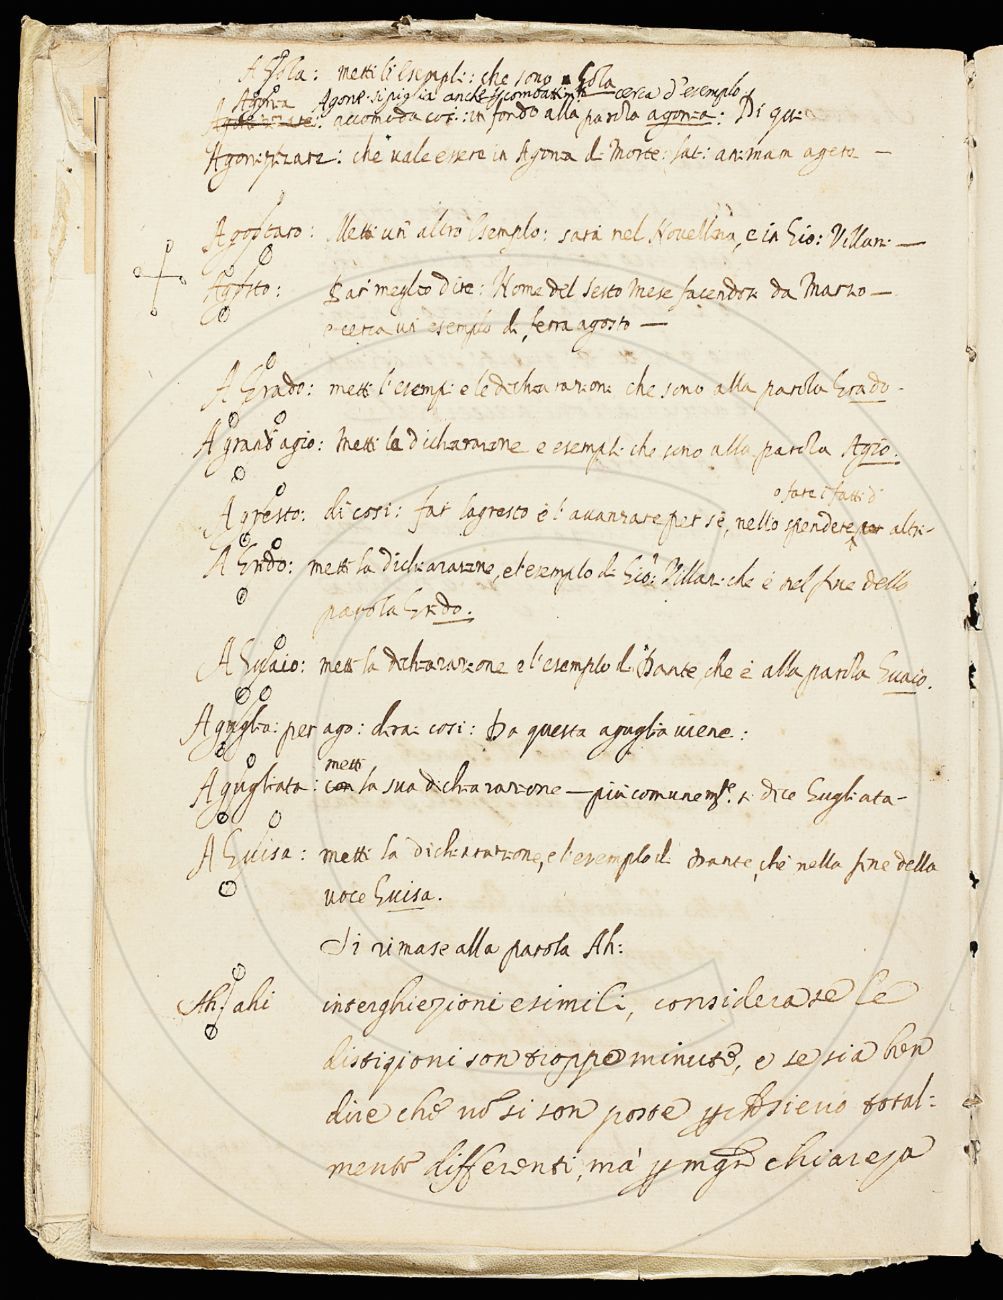 A Gola: metti li esempli: che sono a Gola
Agonia Agone si piglia anche p combattim.to cerca d'esemplo.
accomoda così: in fondo alla parola agonia: Di qui
Agonizzare: che vale essere in Agonia di Morte: lat: animam agere —
Agostaro: Metti un altro Esemplo: sarà nel Novellino, e in Gio: Villani —
Agosto: Par' meglio dire: Nome del sesto Mese facendosi da Marzo —
e cerca un esemplo di ferra agosto —
A Grado: metti l'esempi e le dichiarazioni che sono alla parola Grado.
A grand' agio: Metti la dichiarazione e esempli che sono alla parola Agio.
o fare i fatti d'
Agresto: di così: far l'agresto è l'avanzare per sè, nello spendere per altri-
A Grado: metti la dichiarazione, et esemplo di Gio: Villani che è nel fine della
parola Grado.
A Guaio: metti la dichiarazione e l'esemplo di Dante, che è alla parola Guaio.
Aguglia: per ago: dirai così: Da questa aguglia viene:
metti
Agugliata: con la sua dichiarazione — più comunem.te si dice Gugliata-
A Guisa: metti la dichiarazione, e l'esemplo di Dante, ch'è nella fine della
voce Guisa.
Si rimase alla parola Ah:
Ah, ahi interghiezioni e simili, considerare le
distizioni son troppo minute, e se sia ben
dire che nō si son poste p che sieno total:
mente differenti, mà p mgr chiareza